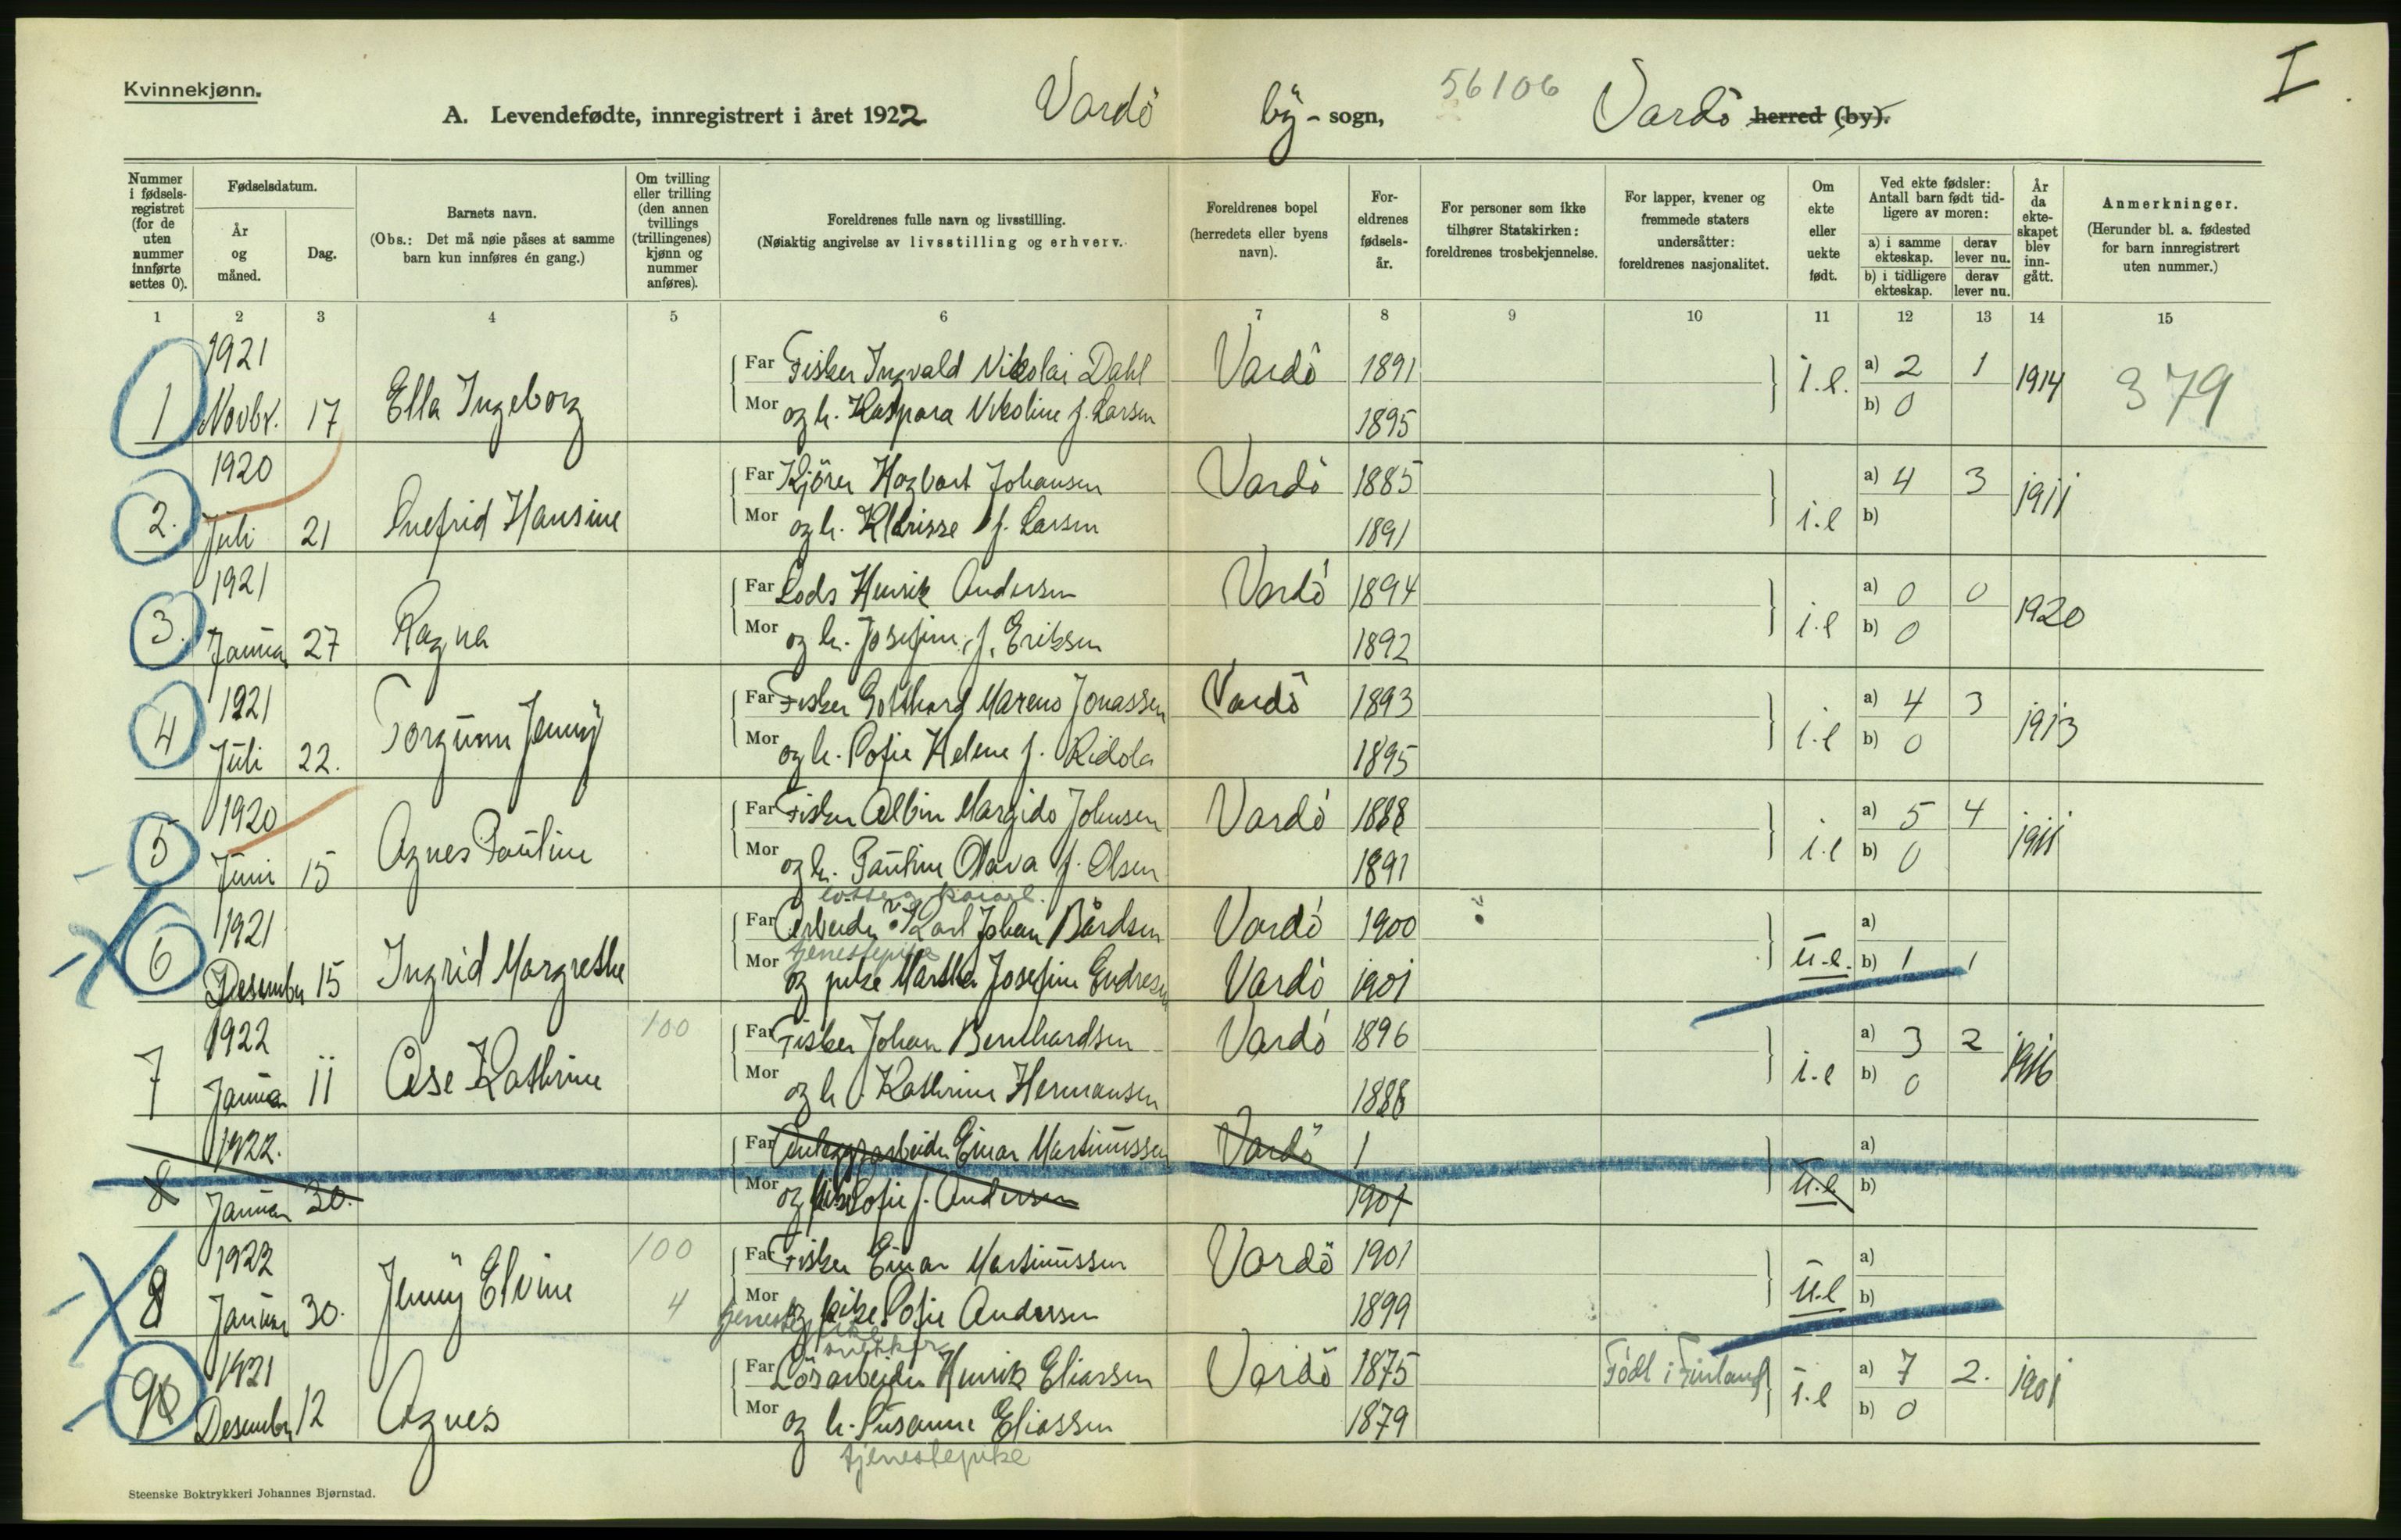 Kvinnekjønn.
A. Levendefødte, innregistrert i året 1922 Vardö by - sogn, 56106 Vardö herred (by). I
Nummer i fødsels-registret (for de uten nummer innførte settes 0).
Fødselsdatum.
År og måned.
Dag.
Barnets navn.
(Obs.: Det må nøie påses at samme barn kun innføres én gang.)
Om tvilling eller trilling (den annen tvillings (trillingenes) kjønn og nummer anføres).
Foreldrenes fulle navn og livsstilling.
(Nøiaktig angivelse av livsstilling og erhverv.
Foreldrenes bopel (herredets eller byens navn).
For-eldrenes fødsels-år.
For personer som ikke tilhører Statskirken: foreldrenes trosbekjennelse.
For lapper, kvener og fremmede staters undersåtter: foreldrenes nasjonalitet.
Om ekte eller uekte født.
Ved ekte fødsler: Antall barn født tid-ligere av moren:
a) i samme ekteskap. derav lever nu.
b) i tidligere ekteskap. derav lever nu.
År da ekte-skapet blev inn-gått.
Anmerkninger.
(Herunder bl. a. fødested for barn innregistrert uten nummer.)
1 2 3 4 5 6 7 8 9 10 11 12 13 14 15
1921 Far Fisker Ingvald Nikolai Dahl Vardö 1891 i.e. a) 2 1 1914 379
1 Novbr. 17 Ella Ingeborg Mor og h. Kaspara Nikoline f. Larsen 1895 b) 0
1920 Far Kjörer Hagbart Johansen Vardö 1885 a) 4 3 1911
2. Juli 21 Snefrid Hansine Mor og h. Klarisse f. Larsen 1891 i.e b)
1921 Far Lods Henrik Andersen Vardö 1894 a) 0 0 1920
3. Januar 27 Ragna Mor og h. Josefine f. Eriksen 1892 i.e b) 0
1921 Far Fisker Gotthard Marenus Jonassen Vardö 1893 a) 4 3 1913
4 Juli 22. Torgunn Jenny Mor og h. Sofie Helene f. Ridola 1895 i.e b) 0
1920 Far Fisker Albin Margido Johnsen Vardö 1888 a) 5 4 1911
5 Juni 15 Agnes Pauline Mor og h. Pauline Olava f. Olsen 1891 i.e b) 0
1921 Far Arbeider Karl Johan Bårdsen Vardö 1900 a)
tjenestepike
6 Desember 15 Ingrid Margrethe Mor og pike Martha Josefine Endresen Vardö 1901 u.e. b) 1 1
1922 100 Far Fisker Johan Bernhardsen Vardö 1896 a) 3 2 1916
7 Januar 11 Åse Kathrine Mor og h. Kathrine Hermansen 1888 i.e b) 0
1922. Far Anleggsarbeider Einar Martinussen Vardö 1 a)
8 Januar 30. Mor og pike Sofie f. Andersen 1901 u.e b)
1922 100 Far Fisker Einar Martinussen Vardö 1901 a)
8 Januar 30. Jenny Elvine 4 Mor og pike Sofie Andersen 1899 u.e b)
tjenestepike
snekker
1921 Far Lösarbeider Henrik Eliassen Vardö 1875 Födt i Finland a) 7 2. 1901
9 Desember 12 Agnes Mor og h. Susanne Eliassen 1879 i.e b) 0
tjenestepike
Steenske Boktrykkeri Johannes Bjørnstad.